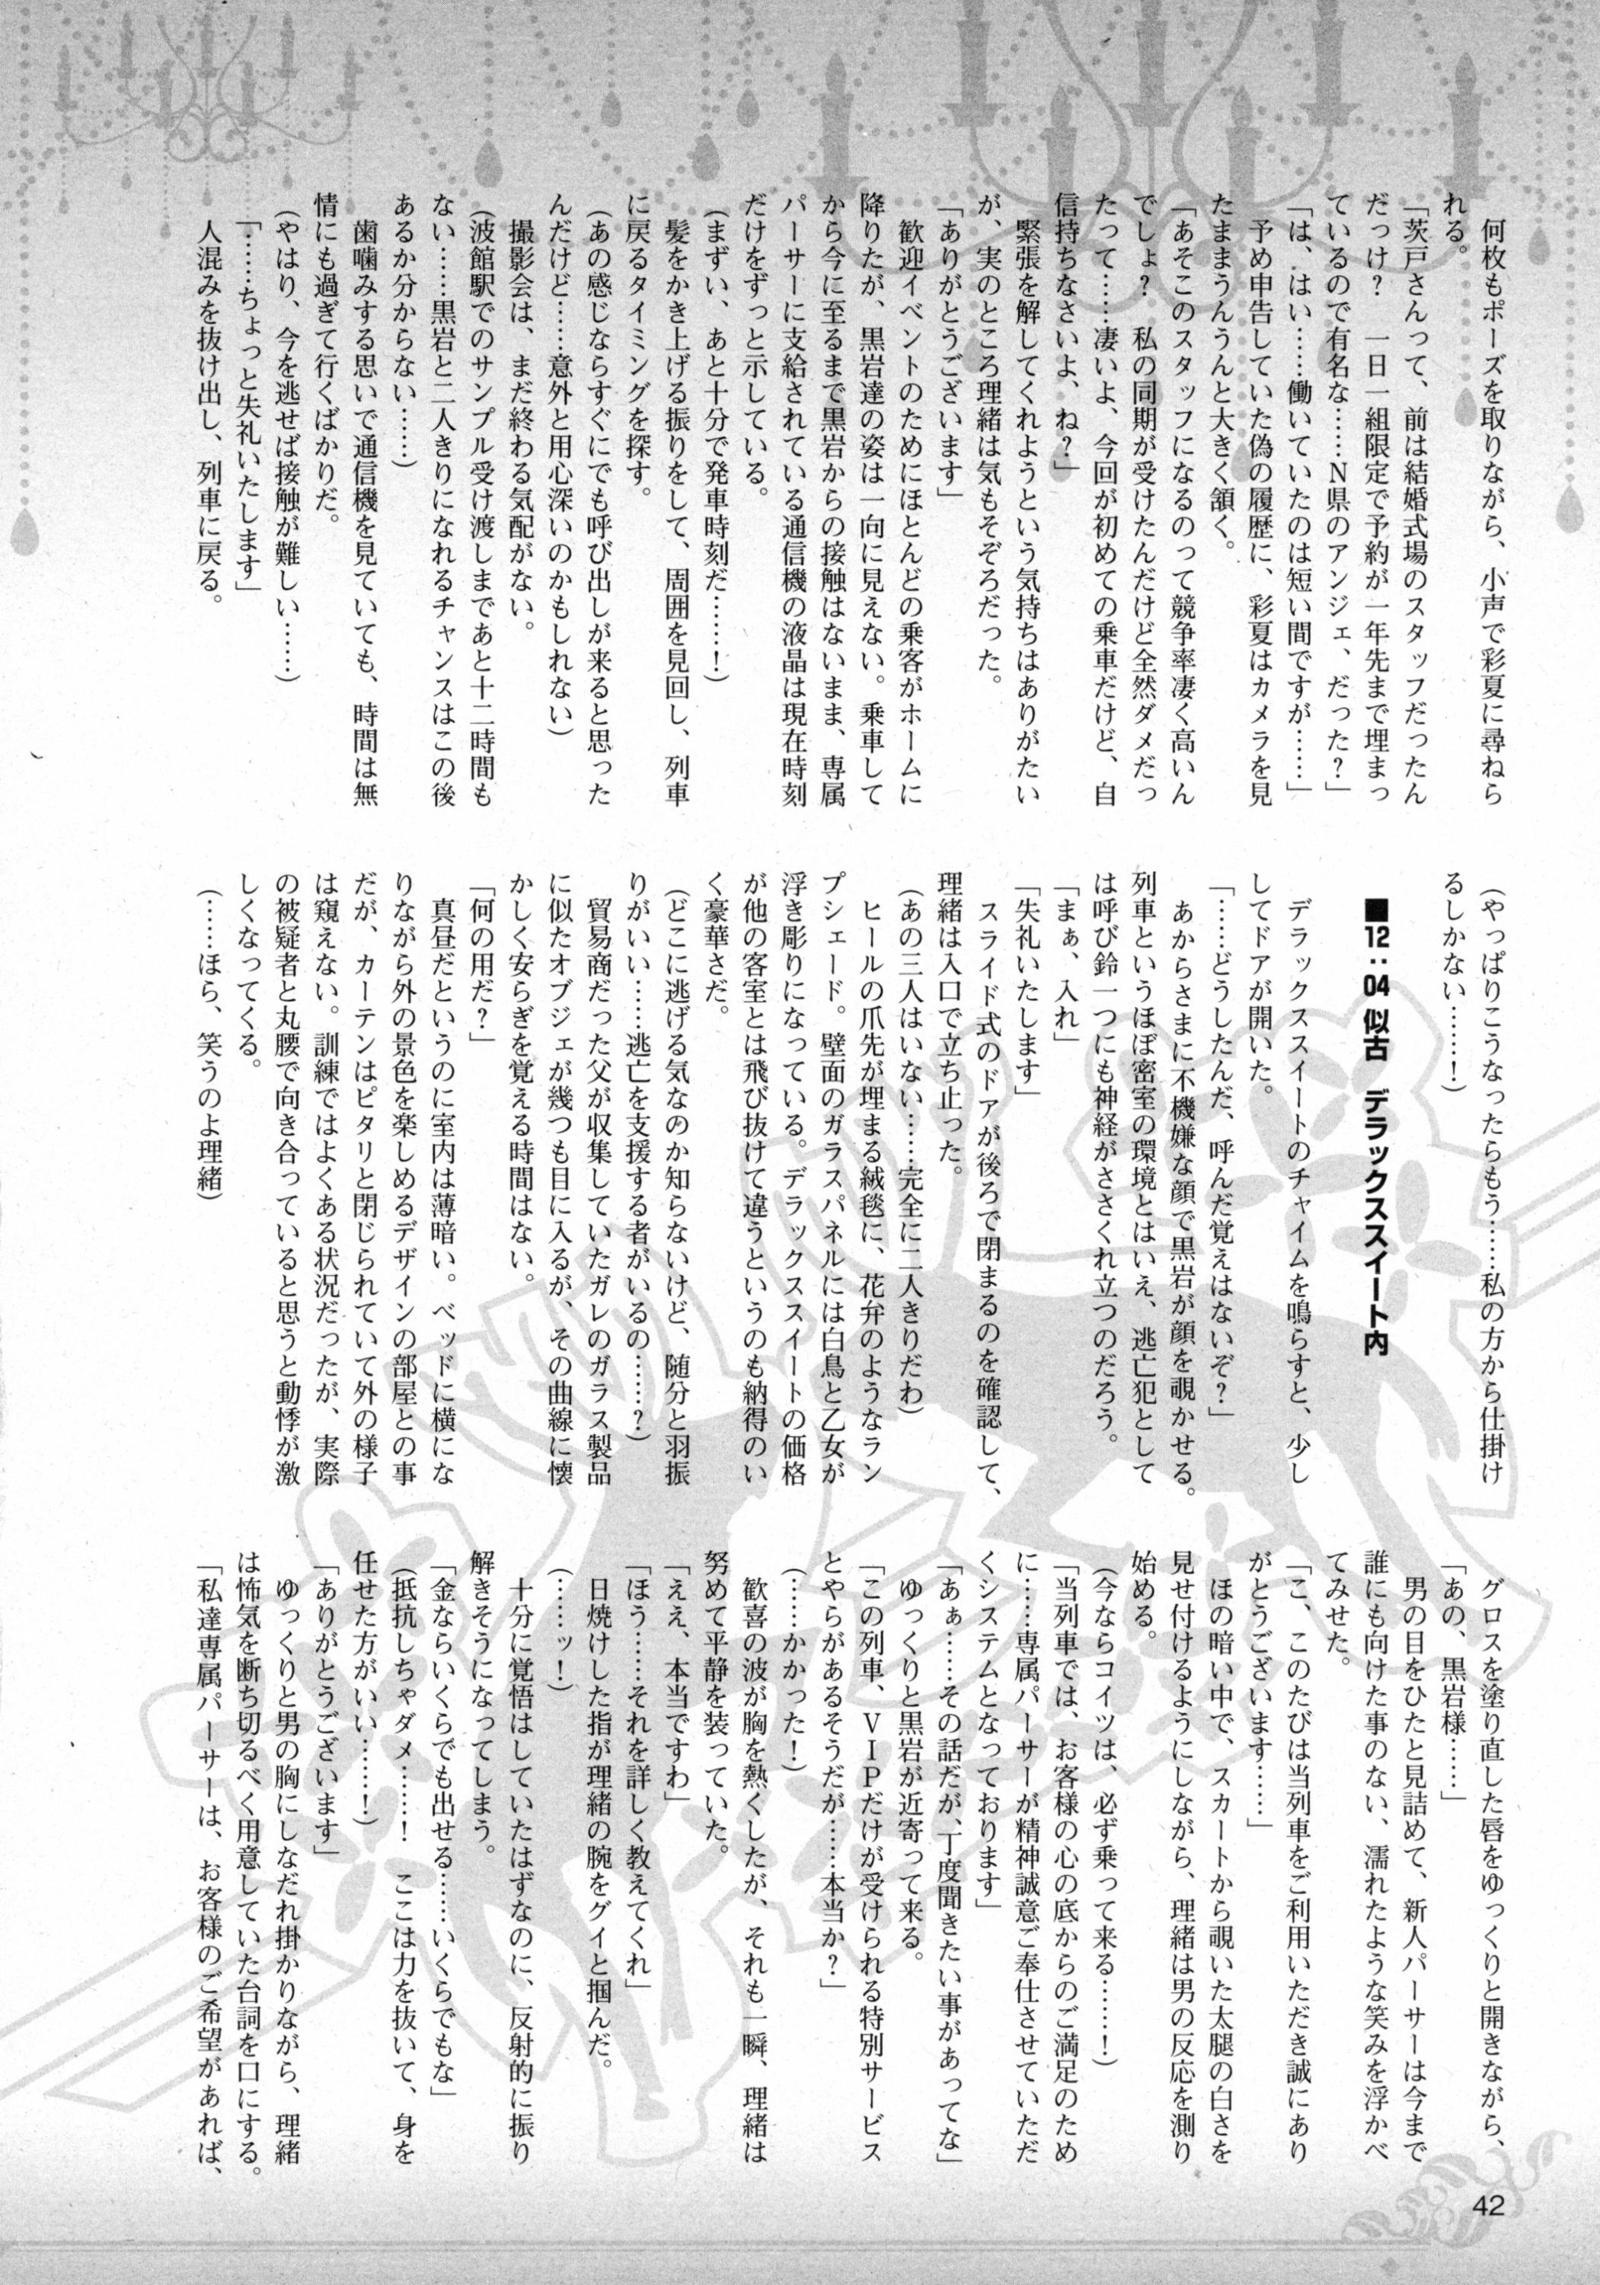 何枚もポーズを取りながら、小声で彩夏に尋ねら
れる。
「茨戸さんって、前は結婚式場のスタッフだったん
だっけ？　一日一組限定で予約が一年先まで埋まっ
ているので有名な……Ｎ県のアンジェ、だった？」
「は、はい……働いていたのは短い間ですが……」
予め申告していた偽の履歴に、彩夏はカメラを見
たままうんうんと大きく頷く。
「あそこのスタッフになるのって競争率凄く高いん
でしょ？　私の同期が受けたんだけど全然ダメだっ
たって……凄いよ、今回が初めての乗車だけど、自
信持ちなさいよ、ね？」
緊張を解してくれようという気持ちはありがたい
が、実のところ理緒は気もそぞろだった。
「ありがとうございます」
歓迎イベントのためにほとんどの乗客がホームに
降りたが、黒岩達の姿は一向に見えない。乗車して
から今に至るまで黒岩からの接触はないまま、専属
パーサーに支給されている通信機の液晶は現在時刻
だけをずっと示している。
（まずい、あと十分で発車時刻だ……！）
髪をかき上げる振りをして、周囲を見回し、列車
に戻るタイミングを探す。
（あの感じならすぐにでも呼び出しが来ると思った
んだけど……意外と用心深いのかもしれない）
撮影会は、まだ終わる気配がない。
（波館駅でのサンプル受け渡しまであと十二時間も
ない……黒岩と二人きりになれるチャンスはこの後
あるか分からない……）
歯噛みする思いで通信機を見ていても、時間は無
情にも過ぎて行くばかりだ。
（やはり、今を逃せば接触が難しい……）
「……ちょっと失礼いたします」
人混みを抜け出し、列車に戻る。
（やっぱりこうなったらもう……私の方から仕掛け
るしかない……！）
■12：04 似古　デラックススイート内
デラックススイートのチャイムを鳴らすと、少し
してドアが開いた。
「……どうしたんだ、呼んだ覚えはないぞ？」
あからさまに不機嫌な顔で黒岩が顔を覗かせる。
列車というほぼ密室の環境とはいえ、逃亡犯として
は呼び鈴一つにも神経がささくれ立つのだろう。
「まぁ、入れ」
「失礼いたします」
スライド式のドアが後ろで閉まるのを確認して、
理緒は入口で立ち止った。
（あの三人はいない……完全に二人きりだわ）
ヒールの爪先が埋まる絨毯に、花弁のようなラン
プシェード。壁面のガラスパネルには白鳥と乙女が
浮き彫りになっている。デラックススイートの価格
が他の客室とは飛び抜けて違うというのも納得のい
く豪華さだ。
（どこに逃げる気なのか知らないけど、随分と羽振
りがいい……逃亡を支援する者がいるの……？）
貿易商だった父が収集していたガレのガラス製品
に似たオブジェが幾つも目に入るが、その曲線に懐
かしく安らぎを覚える時間はない。
「何の用だ？」
真昼だというのに室内は薄暗い。ベッドに横にな
りながら外の景色を楽しめるデザインの部屋との事
だが、カーテンはピタリと閉じられていて外の様子
は窺えない。訓練ではよくある状況だったが、実際
の被疑者と丸腰で向き合っていると思うと動悸が激
しくなってくる。
（……ほら、笑うのよ理緒）
グロスを塗り直した唇をゆっくりと開きながら、
「あの、黒岩様……」
男の目をひたと見詰めて、新人パーサーは今まで
誰にも向けた事のない、濡れたような笑みを浮かべ
てみせた。
「こ、このたびは当列車をご利用いただき誠にあり
がとうございます……」
ほの暗い中で、スカートから覗いた太腿の白さを
見せ付けるようにしながら、理緒は男の反応を測り
始める。
（今ならコイツは、必ず乗って来る……！）
「当列車では、お客様の心の底からのご満足のため
に……専属パーサーが精神誠意ご奉仕させていただ
くシステムとなっております」
「あぁ……その話だが、丁度聞きたい事があってな」
ゆっくりと黒岩が近寄って来る。
「この列車、ＶＩＰだけが受けられる特別サービス
とやらがあるそうだが……本当か？」
（……かかった！）
歓喜の波が胸を熱くしたが、それも一瞬、理緒は
努めて平静を装っていた。
「ええ、本当ですわ」
「ほう……それを詳しく教えてくれ」
日焼けした指が理緒の腕をグイと掴んだ。
（……ッ！）
十分に覚悟はしていたはずなのに、反射的に振り
解きそうになってしまう。
「金ならいくらでも出せる……いくらでもな」
（抵抗しちゃダメ……！　ここは力を抜いて、身を
任せた方がいい……！）
「ありがとうございます」
ゆっくりと男の胸にしなだれ掛かりながら、理緒
は怖気を断ち切るべく用意していた台詞を口にする。
「私達専属パーサーは、お客様のご希望があれば、
42